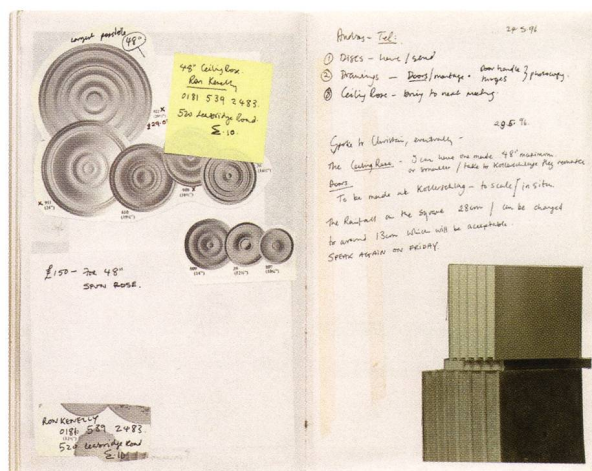 Largest possible 48"
£29.0
X 911
(24")
910
(19½")
908 X
909
(14")
29
(12½")
907
48" Ceiling Rose.
Ron Kenelly
0181 539 2483.
520 Leabridge Road
E.10.
£150 - FOR 48"
SPUN ROSE.
RON KENELLY
0181 539 2483.
520 Leabridge Road
E.10
Andras - Tel:
27.5.96
① DISCS - have / send
② Drawings - Doors / montage + Door handle } photocopy.
hinges
③ Ceiling Rose - bring to next meeting.
29.5.96.
Spoke to Christian, eventually -
The Ceiling Rose - I can have one made 48" maximum
or smaller / take to Kollerschlag.
Doors.
To be made at Kollerschlag - to scale / in situ.
The Rainfall on the square 28cm / can be changed
to around 13cm which will be acceptable
SPEAK AGAIN ON FRIDAY.